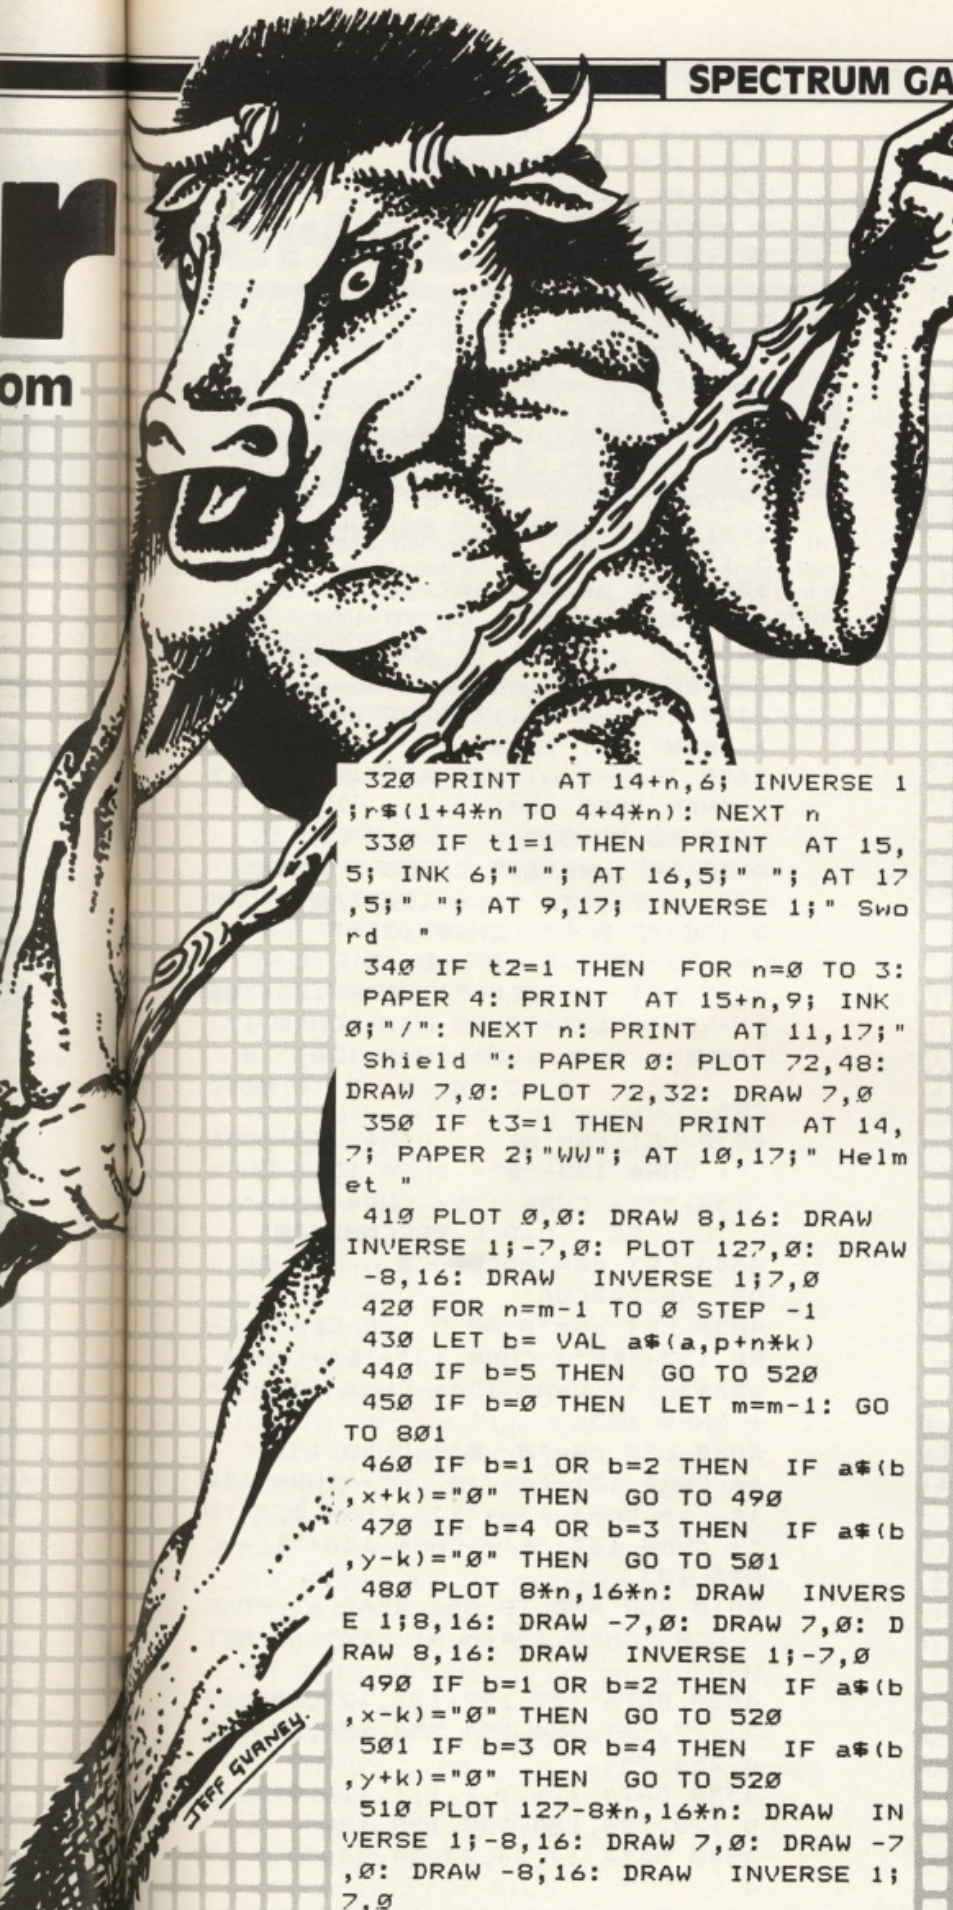 SPECTRUM GA
r
om
320 PRINT  AT 14+n,6; INVERSE 1
;r$(1+4*n TO 4+4*n): NEXT n
330 IF t1=1 THEN  PRINT  AT 15,
5; INK 6;" "; AT 16,5;" "; AT 17
,5;" "; AT 9,17; INVERSE 1;" Swo
rd  "
340 IF t2=1 THEN  FOR n=0 TO 3:
PAPER 4: PRINT  AT 15+n,9; INK
0;"/": NEXT n: PRINT  AT 11,17;"
Shield ": PAPER 0: PLOT 72,48:
DRAW 7,0: PLOT 72,32: DRAW 7,0
350 IF t3=1 THEN  PRINT  AT 14,
7; PAPER 2;"WW"; AT 10,17;" Helm
et "
410 PLOT 0,0: DRAW 8,16: DRAW
INVERSE 1;-7,0: PLOT 127,0: DRAW
-8,16: DRAW  INVERSE 1;7,0
420 FOR n=m-1 TO 0 STEP -1
430 LET b= VAL a$(a,p+n*k)
440 IF b=5 THEN  GO TO 520
450 IF b=0 THEN  LET m=m-1: GO
TO 801
460 IF b=1 OR b=2 THEN  IF a$(b
,x+k)="0" THEN  GO TO 490
470 IF b=4 OR b=3 THEN  IF a$(b
,y-k)="0" THEN  GO TO 501
480 PLOT 8*n,16*n: DRAW  INVERS
E 1;8,16: DRAW -7,0: DRAW 7,0: D
RAW 8,16: DRAW  INVERSE 1;-7,0
490 IF b=1 OR b=2 THEN  IF a$(b
,x-k)="0" THEN  GO TO 520
501 IF b=3 OR b=4 THEN  IF a$(b
,y+k)="0" THEN  GO TO 520
510 PLOT 127-8*n,16*n: DRAW  IN
VERSE 1;-8,16: DRAW 7,0: DRAW -7
,0: DRAW -8,16: DRAW  INVERSE 1;
7,0
JEFF GURNEY.